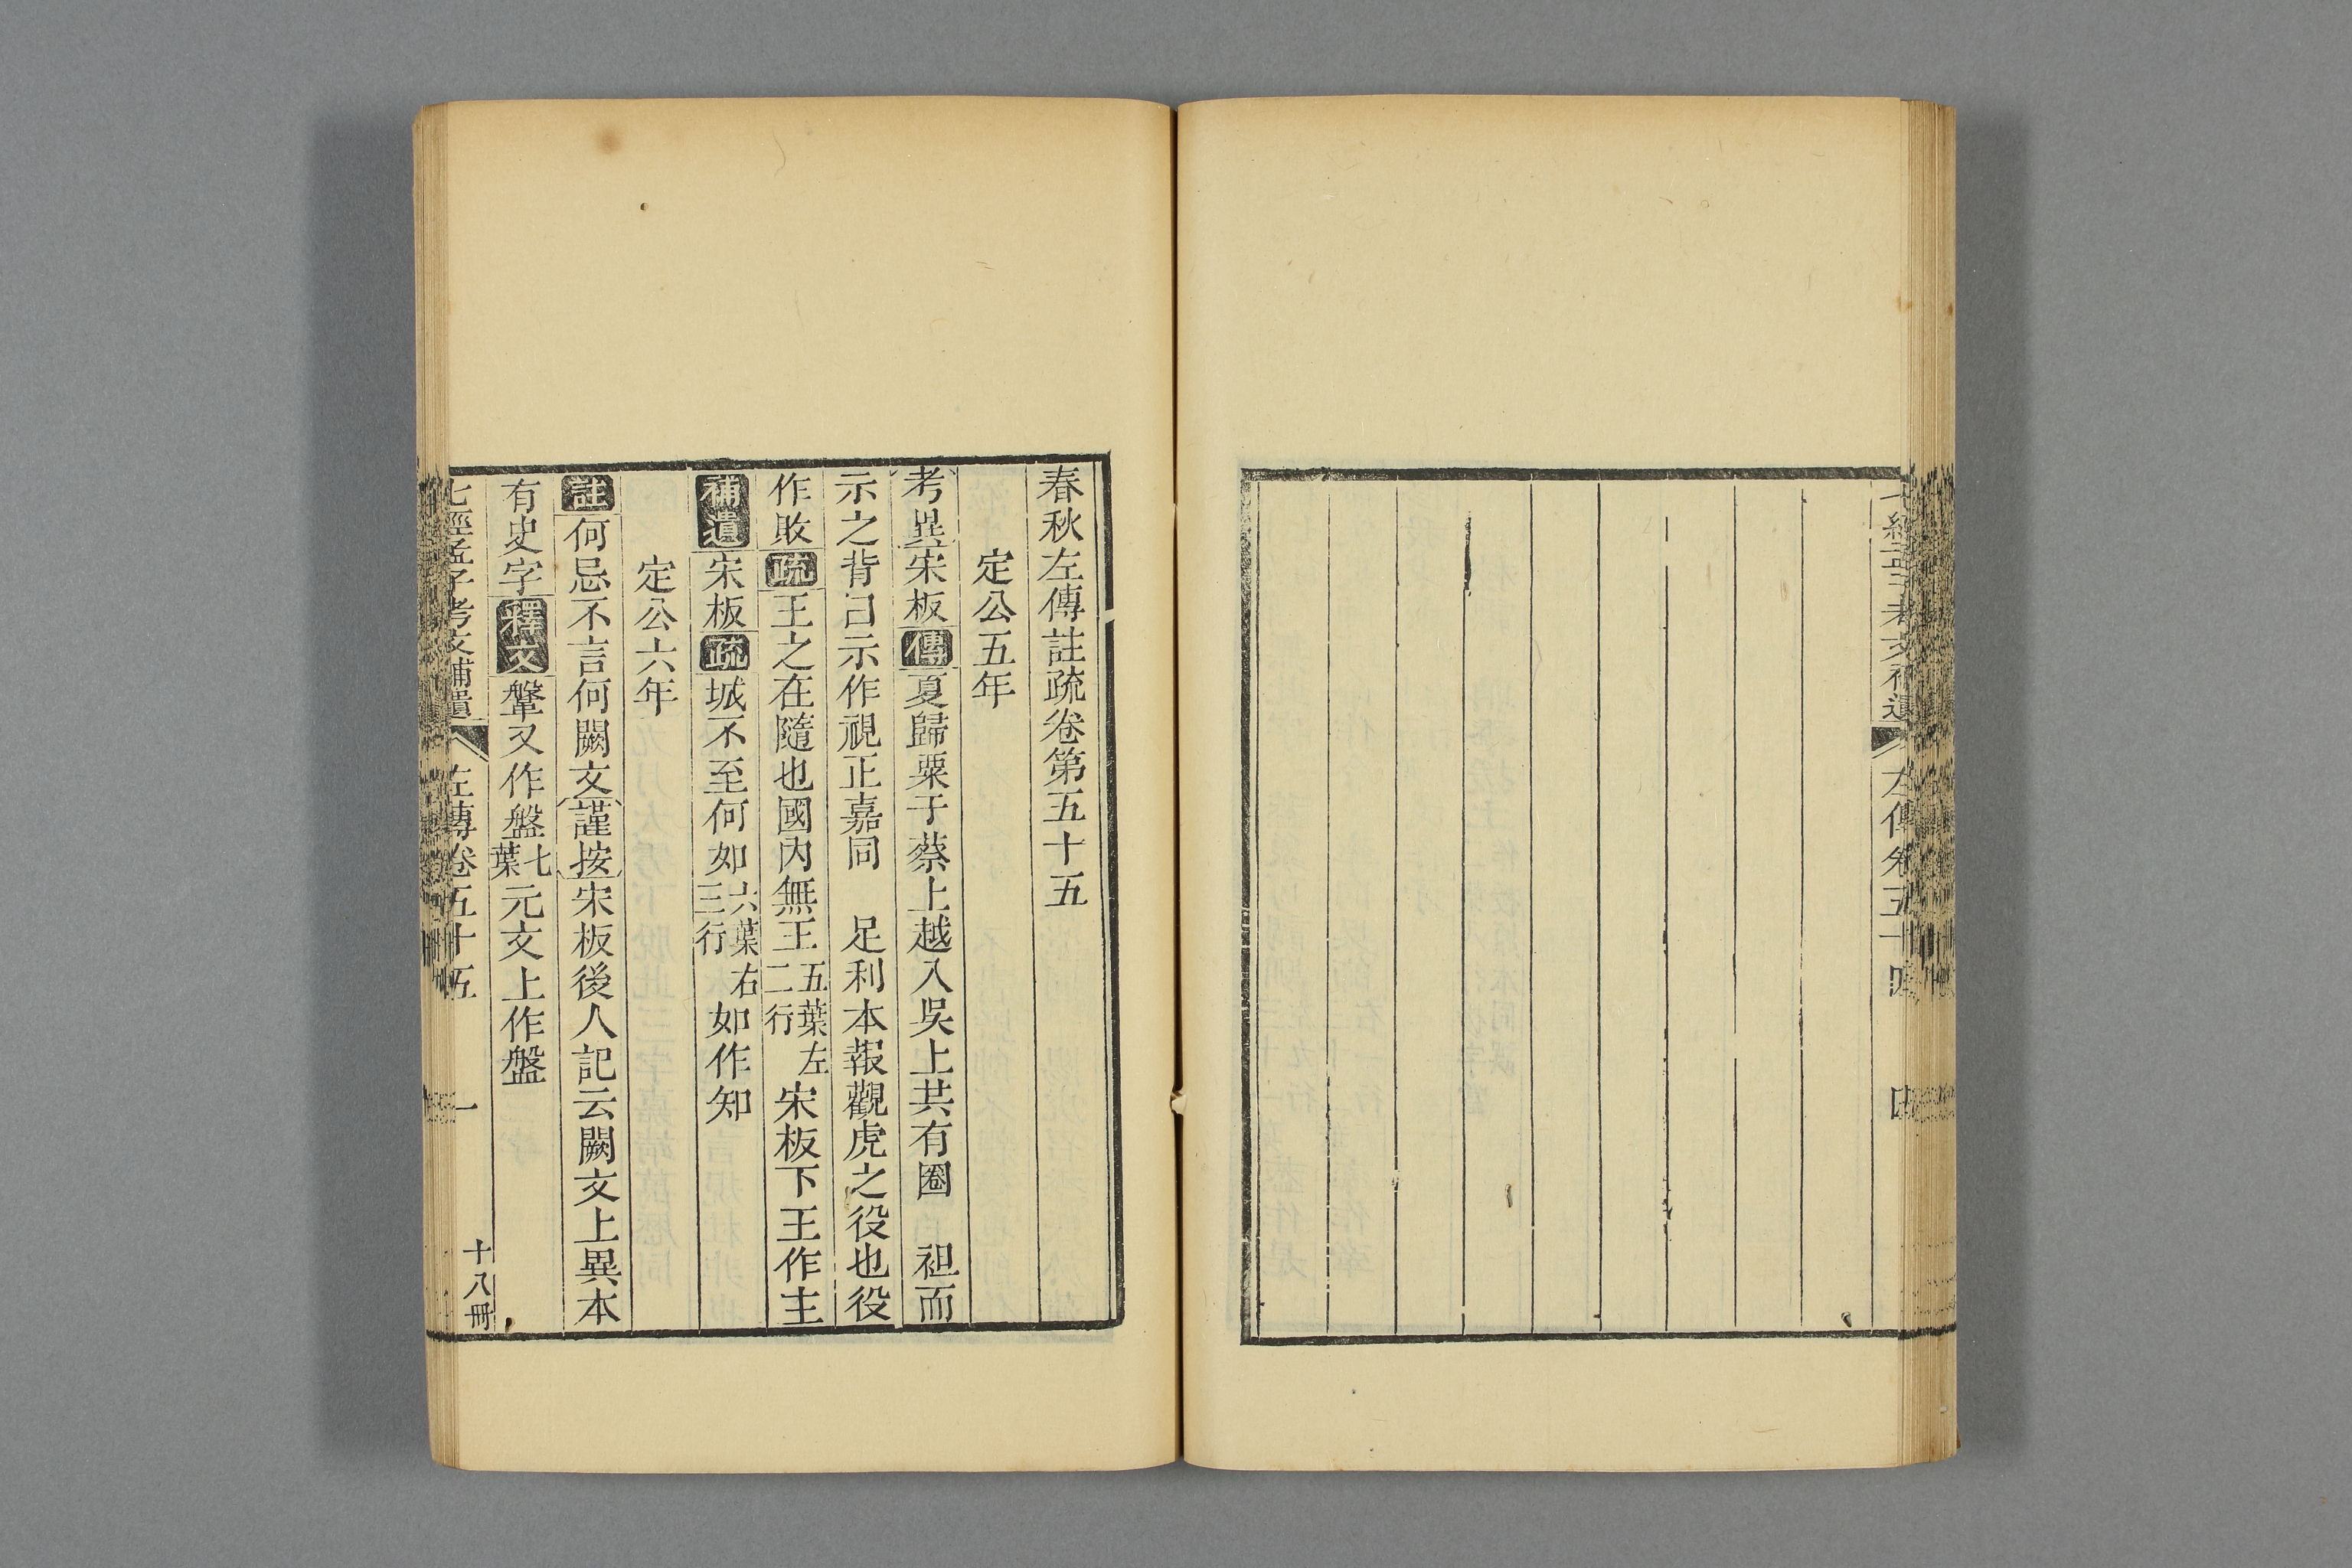 七經孟子考文補遺 左傳卷五十四
春秋左傳註疏卷第五十五
定公五年
考異宋板傳夏歸粟于蔡上越入吳上共有圈 袒而
示之背㠯示作視正嘉同 足利本報觀虎之役也役
作敗疏王之在隨也國內無王五葉左二行宋板下王作主
補遺宋板疏城不至何如六葉右三行如作知
定公六年
註何忌不言何闕文謹按宋板後人記云闕文上異本
有史字釋文鞶又作盤七葉元文上作盤
七經孟子考文補遺 左傳卷五十五 一 十八冊